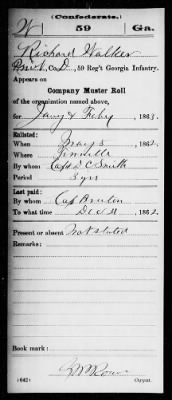 (Confederate.)
W 59 Ga.
Richard Walker
Pvt, Co. D, 59 Reg't Georgia Infantry.
Appears on
Company Muster Roll
of the organization named above,
for Jany & Feby, 1863.
Enlisted:
When May 3, 1862.
Where
By whom Capt D C Smith
Period 3 yrs
Last paid:
By whom Cap Bruton
To what time Dec 31, 1862.
Present or absent Not stated
Remarks:
Book mark:
(642)
Copyist.